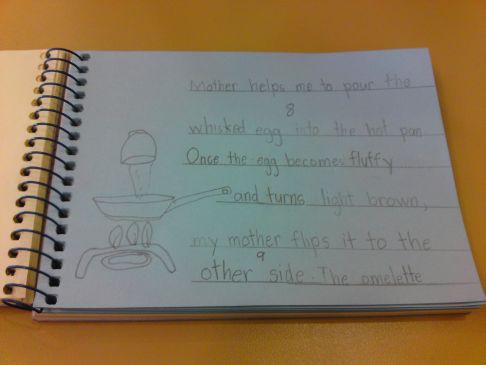 Mother helps me to pour the
8
whisked egg into the hot pan
Once the egg becomes fluffy
and turns light brown,
my mother flips it to the
9
other side. The omelette